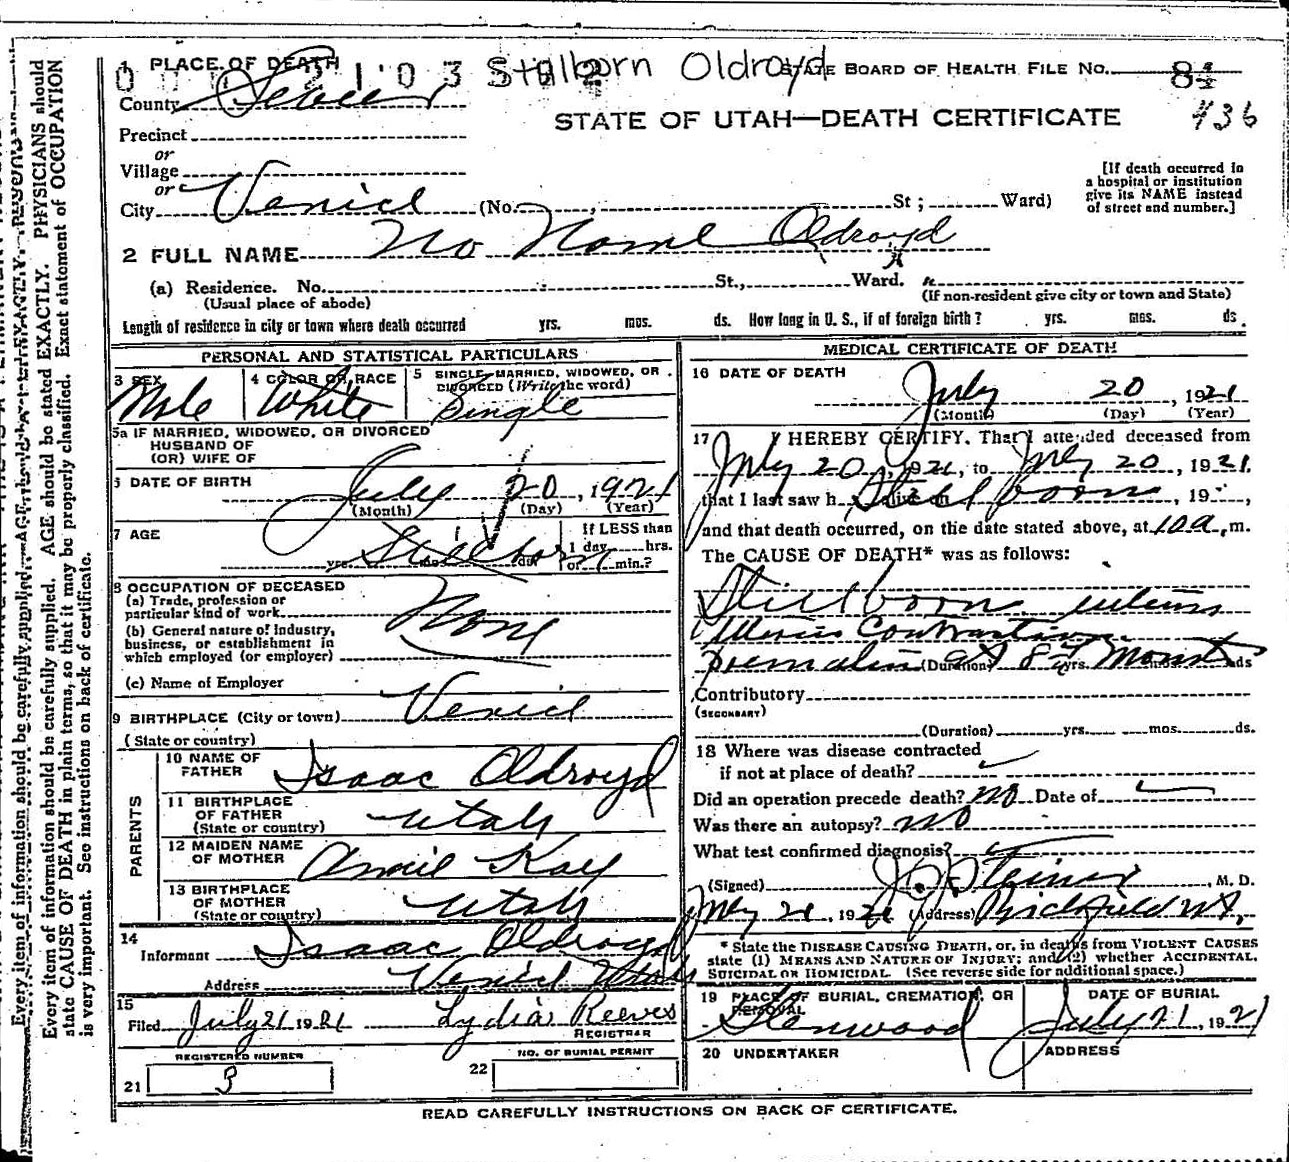 Every item of information should be carefully supplied. AGE should be stated EXACTLY. PHYSICIANS should
state CAUSE OF DEATH in plain terms, so that it may be properly classified. Exact statement of OCCUPATION
is very important. See instructions on back of certificate.
1 PLACE OF DEATH Stillborn Oldroyd STATE BOARD OF HEALTH FILE No. 84
County Sevier
STATE OF UTAH—DEATH CERTIFICATE 436
Precinct
or
Village
or
City Venice (No. St; Ward)
[If death occurred in
a hospital or institution
give its NAME instead
of street and number.]
2 FULL NAME No Name Oldroyd
(a) Residence. No. St., Ward.
(Usual place of abode) (If non-resident give city or town and State)
Length of residence in city or town where death occurred yrs. mos. ds. How long in U. S., if of foreign birth? yrs. mos. ds.
PERSONAL AND STATISTICAL PARTICULARS
3 SEX 4 COLOR OR RACE 5 SINGLE, MARRIED, WIDOWED, OR
DIVORCED (Write the word)
Male White Single
5a IF MARRIED, WIDOWED, OR DIVORCED
HUSBAND OF
(OR) WIFE OF
6 DATE OF BIRTH July 20, 1921
(Month) (Day) (Year)
7 AGE If LESS than
1 day hrs.
Stillborn yrs. mos. ds. or min.?
8 OCCUPATION OF DECEASED
(a) Trade, profession or
particular kind of work None
(b) General nature of industry,
business, or establishment in
which employed (or employer)
(c) Name of Employer
9 BIRTHPLACE (City or town) Venice
(State or country)
PARENTS
10 NAME OF
FATHER Isaac Oldroyd
11 BIRTHPLACE
OF FATHER
(State or country) Utah
12 MAIDEN NAME
OF MOTHER Annie Kay
13 BIRTHPLACE
OF MOTHER
(State or country) Utah
14
Informant Isaac Oldroyd
Address Venice Utah
15
Filed July 21 1921 Lydia Reeves
REGISTRAR
REGISTERED NUMBER NO. OF BURIAL PERMIT
21 3 22
MEDICAL CERTIFICATE OF DEATH
16 DATE OF DEATH
July 20, 1921
(Month) (Day) (Year)
17 I HEREBY CERTIFY, That I attended deceased from
July 20, 1921, to July 20, 1921
that I last saw h alive on Still born, 19 ,
and that death occurred, on the date stated above, at 10 a, m.
The CAUSE OF DEATH* was as follows:
Stillborn
(Duration) yrs. mos. ds
Contributory
(SECONDARY)
(Duration) yrs. mos. ds.
18 Where was disease contracted
if not at place of death?
Did an operation precede death? no Date of
Was there an autopsy? no
What test confirmed diagnosis?
(Signed) J. J. Steiner, M. D.
July 21, 1921 (Address) Richfield Ut.
* State the DISEASE CAUSING DEATH, or, in deaths from VIOLENT CAUSES
state (1) MEANS AND NATURE OF INJURY; and (2) whether ACCIDENTAL,
SUICIDAL OR HOMICIDAL. (See reverse side for additional space.)
19 PLACE OF BURIAL, CREMATION, OR
REMOVAL DATE OF BURIAL
Glenwood July 21, 1921
20 UNDERTAKER ADDRESS
READ CAREFULLY INSTRUCTIONS ON BACK OF CERTIFICATE.